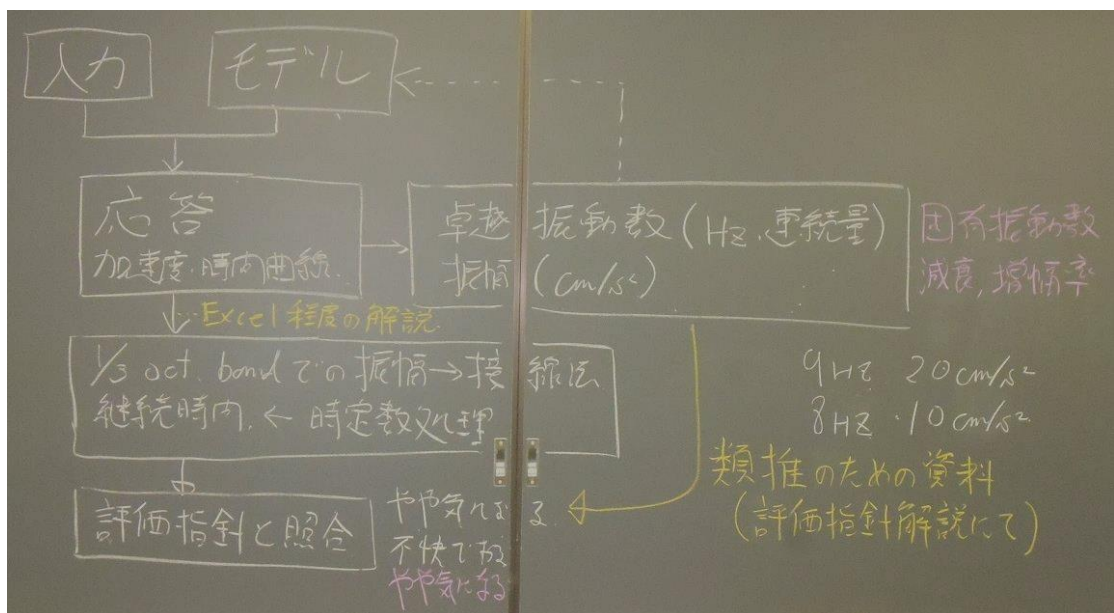 入力
モデル
応答
加速度・時間曲線
卓越振動数(Hz.連続量)
振幅(cm/s²)
固有振動数
減衰,増幅率
…Excel程度の解説
1/3 oct. bandでの振幅→接線法
継続時間.←時定数処理
9Hz 20cm/s²
8Hz・10cm/s²
類推のための資料
(評価指針解説にて)
評価指針と照合
やや気になる
不快である
やや気になる